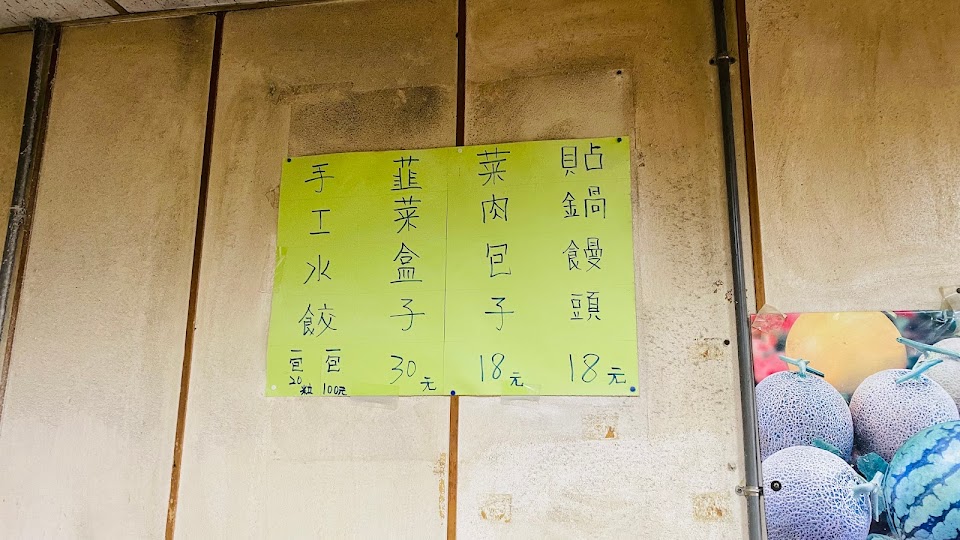 貼鍋饅頭 18元
菜肉包子 18元
韮菜盒子 30元
手工水餃 一包100元 一包20粒